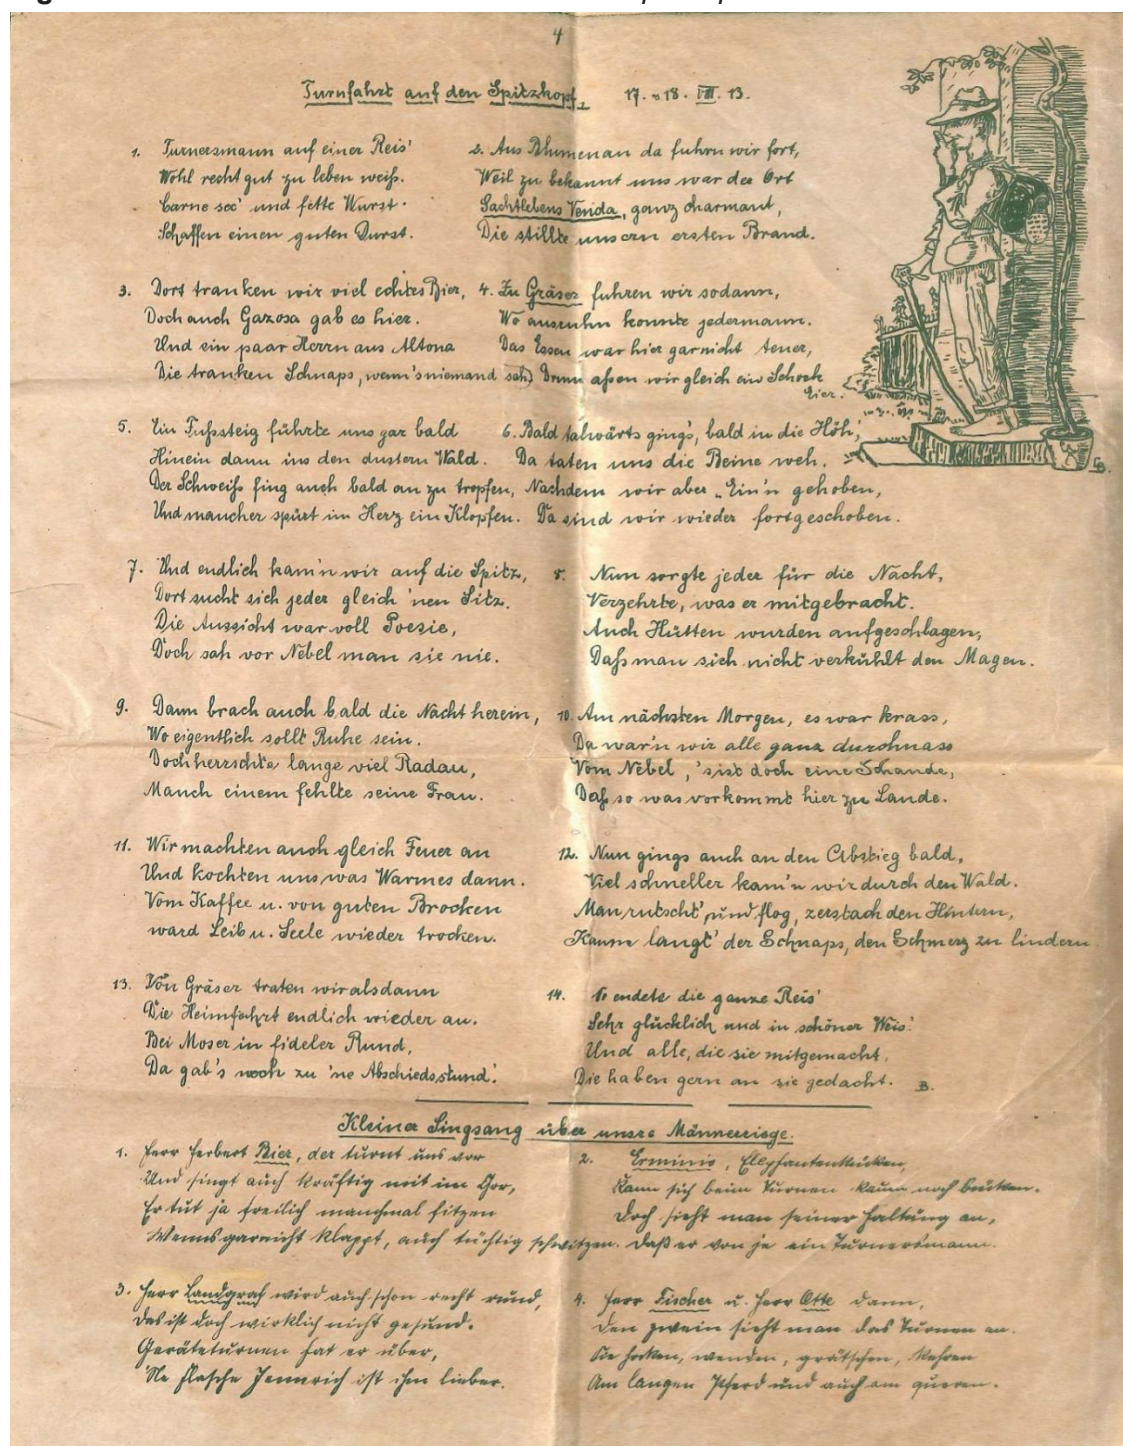 4
Turnfahrt auf den Spitzkopf, 17. u 18. VIII. 13.
1. Turnersmann auf einer Reis'
Wohl recht gut zu leben weiß.
Carne sec' und fette Wurst
Schaffen einen guten Durst.
2. Aus Blumenau da fuhrn wir fort,
Weil zu bekannt uns war der Ort
Sachtlebens Venda, ganz charmant,
Die stillte unsern ersten Brand.
3. Dort tranken wir viel echtes Bier,
Doch auch Gazosa gab es hier.
Und ein paar Herrn aus Altona
Die tranken Schnaps, wenn's niemand sah.
4. Zu Gräser fuhren wir sodann,
Wo ausruhn konnte jedermann.
Das Essen war hier garnicht teuer,
Drum aßen wir gleich ein Schock
Eier.
5. Ein Fußsteig führte uns gar bald
Hinein dann ins den dustern Wald.
Der Schweiß fing auch bald an zu tropfen,
Und mancher spürt im Herz ein Klopfen.
6. Bald talwärts ging's, bald in die Höh',
Da taten uns die Beine weh.
Nachdem wir aber „Ein'n gehoben,
Da sind wir wieder fortgeschoben.
7. Und endlich kam'n wir auf die Spitz,
Dort sucht sich jeder gleich 'nen Sitz.
Die Aussicht war voll Poesie,
Doch sah vor Nebel man sie nie.
8. Nun sorgte jeder für die Nacht,
Verzehrte, was er mitgebracht.
Auch Hütten wurden aufgeschlagen,
Daß man sich nicht verkühlt den Magen.
9. Dann brach auch bald die Nacht herein,
Wo eigentlich sollt Ruhe sein.
Doch herrschte lange viel Radau,
Manch einem fehlte seine Frau.
10. Am nächsten Morgen, es war krass,
Da war'n wir alle ganz durchnass
Vom Nebel, 's ist doch eine Schande,
Daß so was vorkommt hier zu Lande.
11. Wir machten auch gleich Feuer an
Und kochten uns was Warmes dann.
Vom Kaffee u. von guten Brocken
ward Leib u. Seele wieder trocken.
12. Nun gings auch an den Abstieg bald,
Viel schneller kam'n wir durch den Wald.
Man rutscht' und flog, zerstach den Hintern,
Kaum langt' der Schnaps, den Schmerz zu lindern
13. Von Gräser traten wir alsdann
Die Heimfahrt endlich wieder an.
Bei Moser in fideler Rund,
Da gab's noch zu 'ne Abschiedsstund'.
14. So endete die ganze Reis'
Sehr glücklich und in schöner Weis'.
Und alle, die sie mitgemacht,
Die haben gern an sie gedacht. B.
Kleiner Singsang über unsre Männerriege.
1. Herr Herbert Bier, der turnt uns vor
Und singt auch kräftig mit im Chor,
Er tut ja freilich manchmal hitzen
Wenns garnicht klappt, auch tüchtig schwitzen.
2. Erminio, Elephantenkücken,
Kann sich beim Turnen kaum noch bücken.
Doch sieht man seiner Haltung an,
Daß er von je ein Turnersmann.
3. Herr Landgraf wird auch schon recht rund,
Das ist doch wirklich nicht gesund.
Geräteturnen hat er über,
'Ne Flasche Jennrich ist ihm lieber.
4. Herr Fischer u. Herr Otte dann,
Den zwein sieht man das Turnen an.
Sie hocken, wenden, grätschen, kehren
Am langen Pferd und auch am queren.